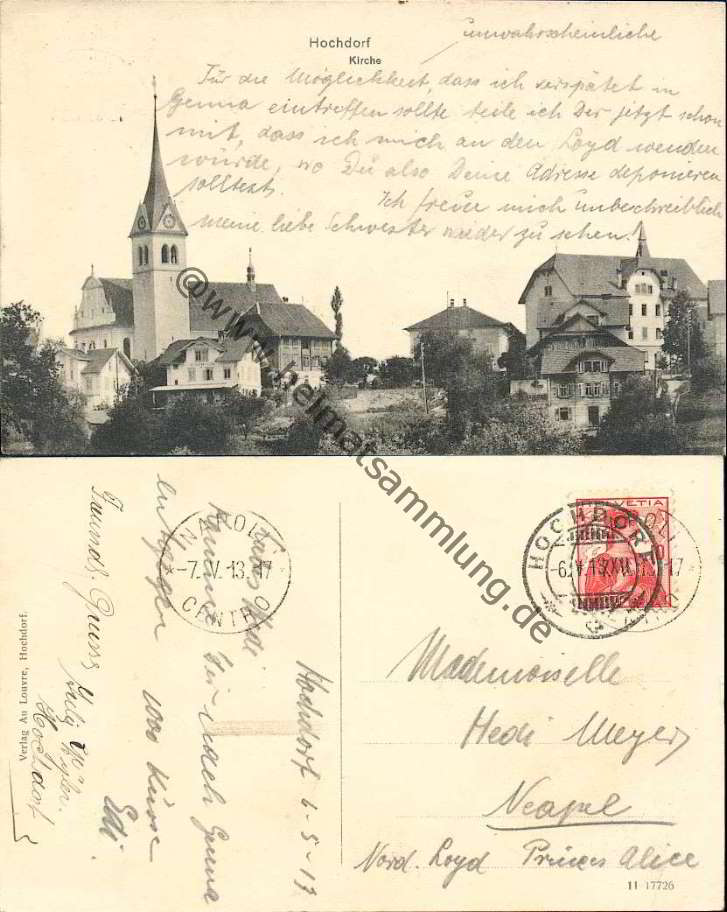 Hochdorf
Kirche
unwahrscheinliche
Für die Möglichkeit, dass ich verspätet in
Genua eintreffen sollte teile ich Dir jetzt schon
mit, dass ich mich an den Loyd wenden
würde, wo Du also Deine Adresse deponieren
solltest.
Ich freue mich unbeschreiblich
meine liebe Schwester wieder zu sehen!
@www.heimatsammlung.de
HELVETIA
HOCHDORF
NAPOLI
CENTRO
-7. V. 13. 17
Hochdorf 6-5-13
Liebe Hedi
Komme Dir nach Genua
entgegen
1000 Küsse
Edi.
Freundl. Gruss
Hochdorf
Verlag Au Louvre, Hochdorf.
Mademoiselle
Hedi Meyer
Neapel
Nord. Loyd Princess Alice
11 17726